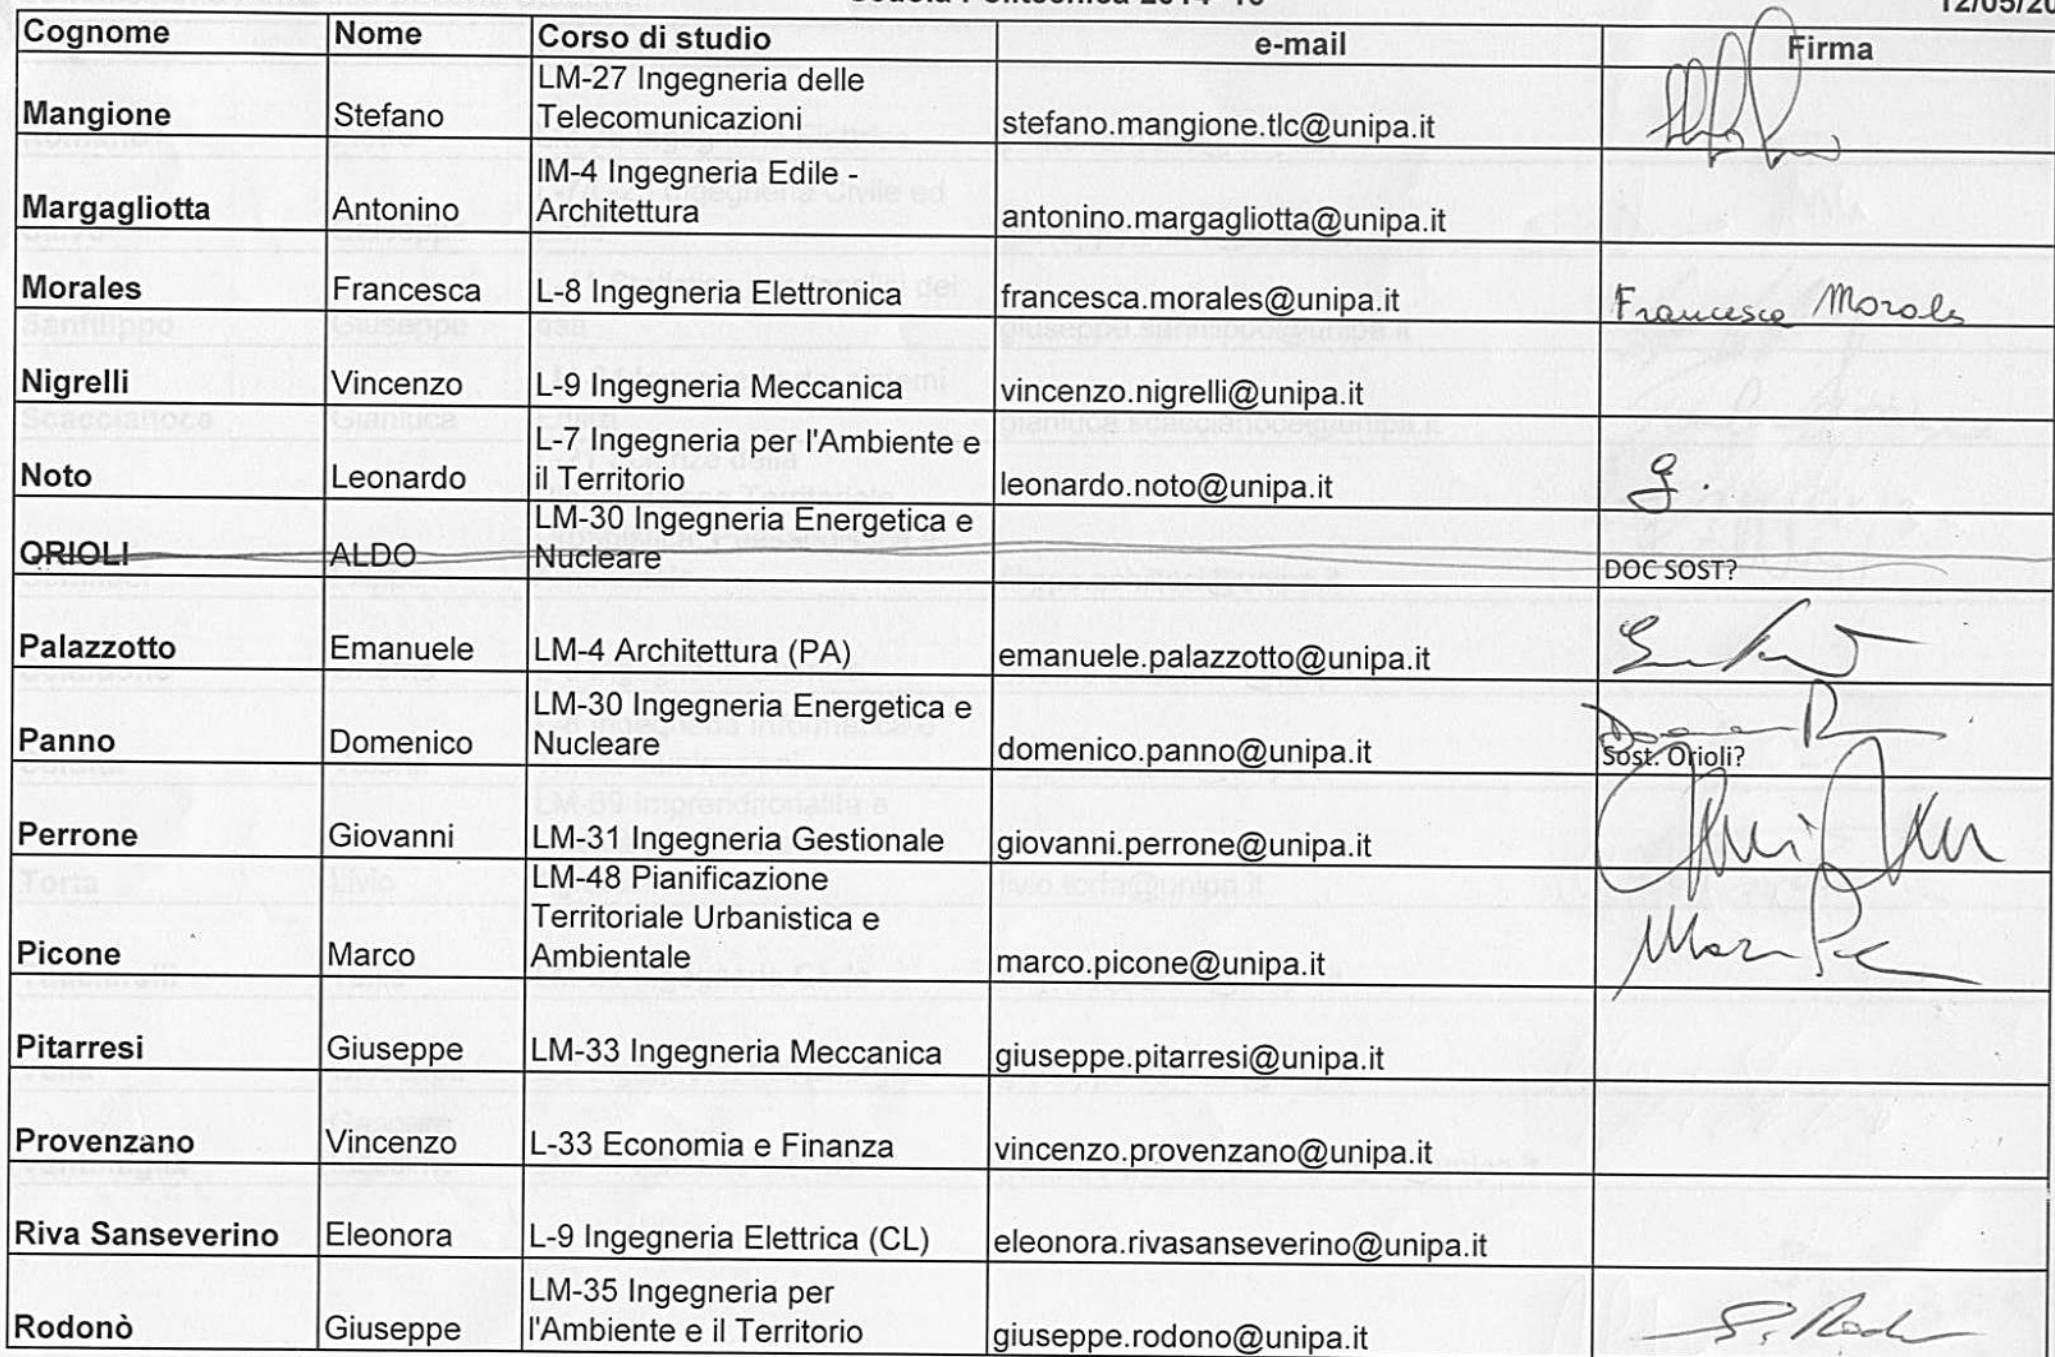 Cognome Nome Corso di studio e-mail Firma
LM-27 Ingegneria delle
Mangione Stefano Telecomunicazioni stefano.mangione.tlc@unipa.it
IM-4 Ingegneria Edile -
Margagliotta Antonino Architettura antonino.margagliotta@unipa.it
Morales Francesca L-8 Ingegneria Elettronica francesca.morales@unipa.it Francesca Morales
Nigrelli Vincenzo L-9 Ingegneria Meccanica vincenzo.nigrelli@unipa.it
L-7 Ingegneria per l'Ambiente e
Noto Leonardo il Territorio leonardo.noto@unipa.it
LM-30 Ingegneria Energetica e
ORIOLI ALDO Nucleare DOC SOST?
Palazzotto Emanuele LM-4 Architettura (PA) emanuele.palazzotto@unipa.it
LM-30 Ingegneria Energetica e
Panno Domenico Nucleare domenico.panno@unipa.it Sost. Orioli?
Perrone Giovanni LM-31 Ingegneria Gestionale giovanni.perrone@unipa.it
LM-48 Pianificazione
Territoriale Urbanistica e
Picone Marco Ambientale marco.picone@unipa.it
Pitarresi Giuseppe LM-33 Ingegneria Meccanica giuseppe.pitarresi@unipa.it
Provenzano Vincenzo L-33 Economia e Finanza vincenzo.provenzano@unipa.it
Riva Sanseverino Eleonora L-9 Ingegneria Elettrica (CL) eleonora.rivasanseverino@unipa.it
LM-35 Ingegneria per
Rodonò Giuseppe l'Ambiente e il Territorio giuseppe.rodono@unipa.it